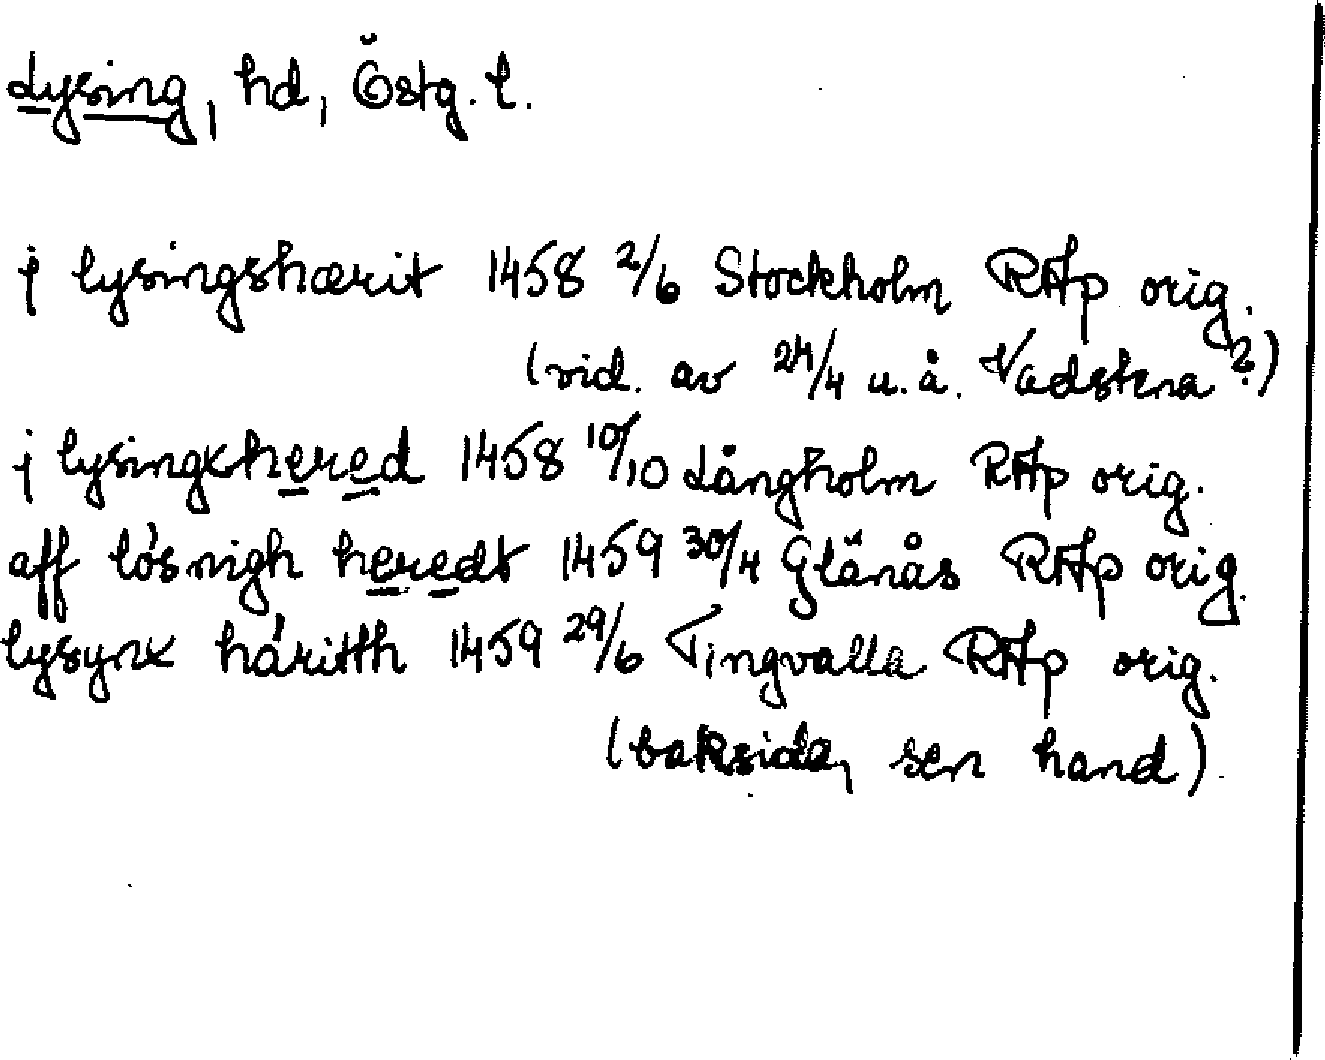 Lysing, hd, Östg. l.
j lysingshærit 1458 2/6 Stockholm RAp orig.
(vid. av 24/4 u.å. Vadstena?)
j lysingxhered 1458 10/10 Långholm RAp orig.
aff lósnigh heredt 1459 30/4 Glänås RAp orig.
lysynx háritth 1459 29/6 Tingvalla RAp orig.
(baksida, sen hand).